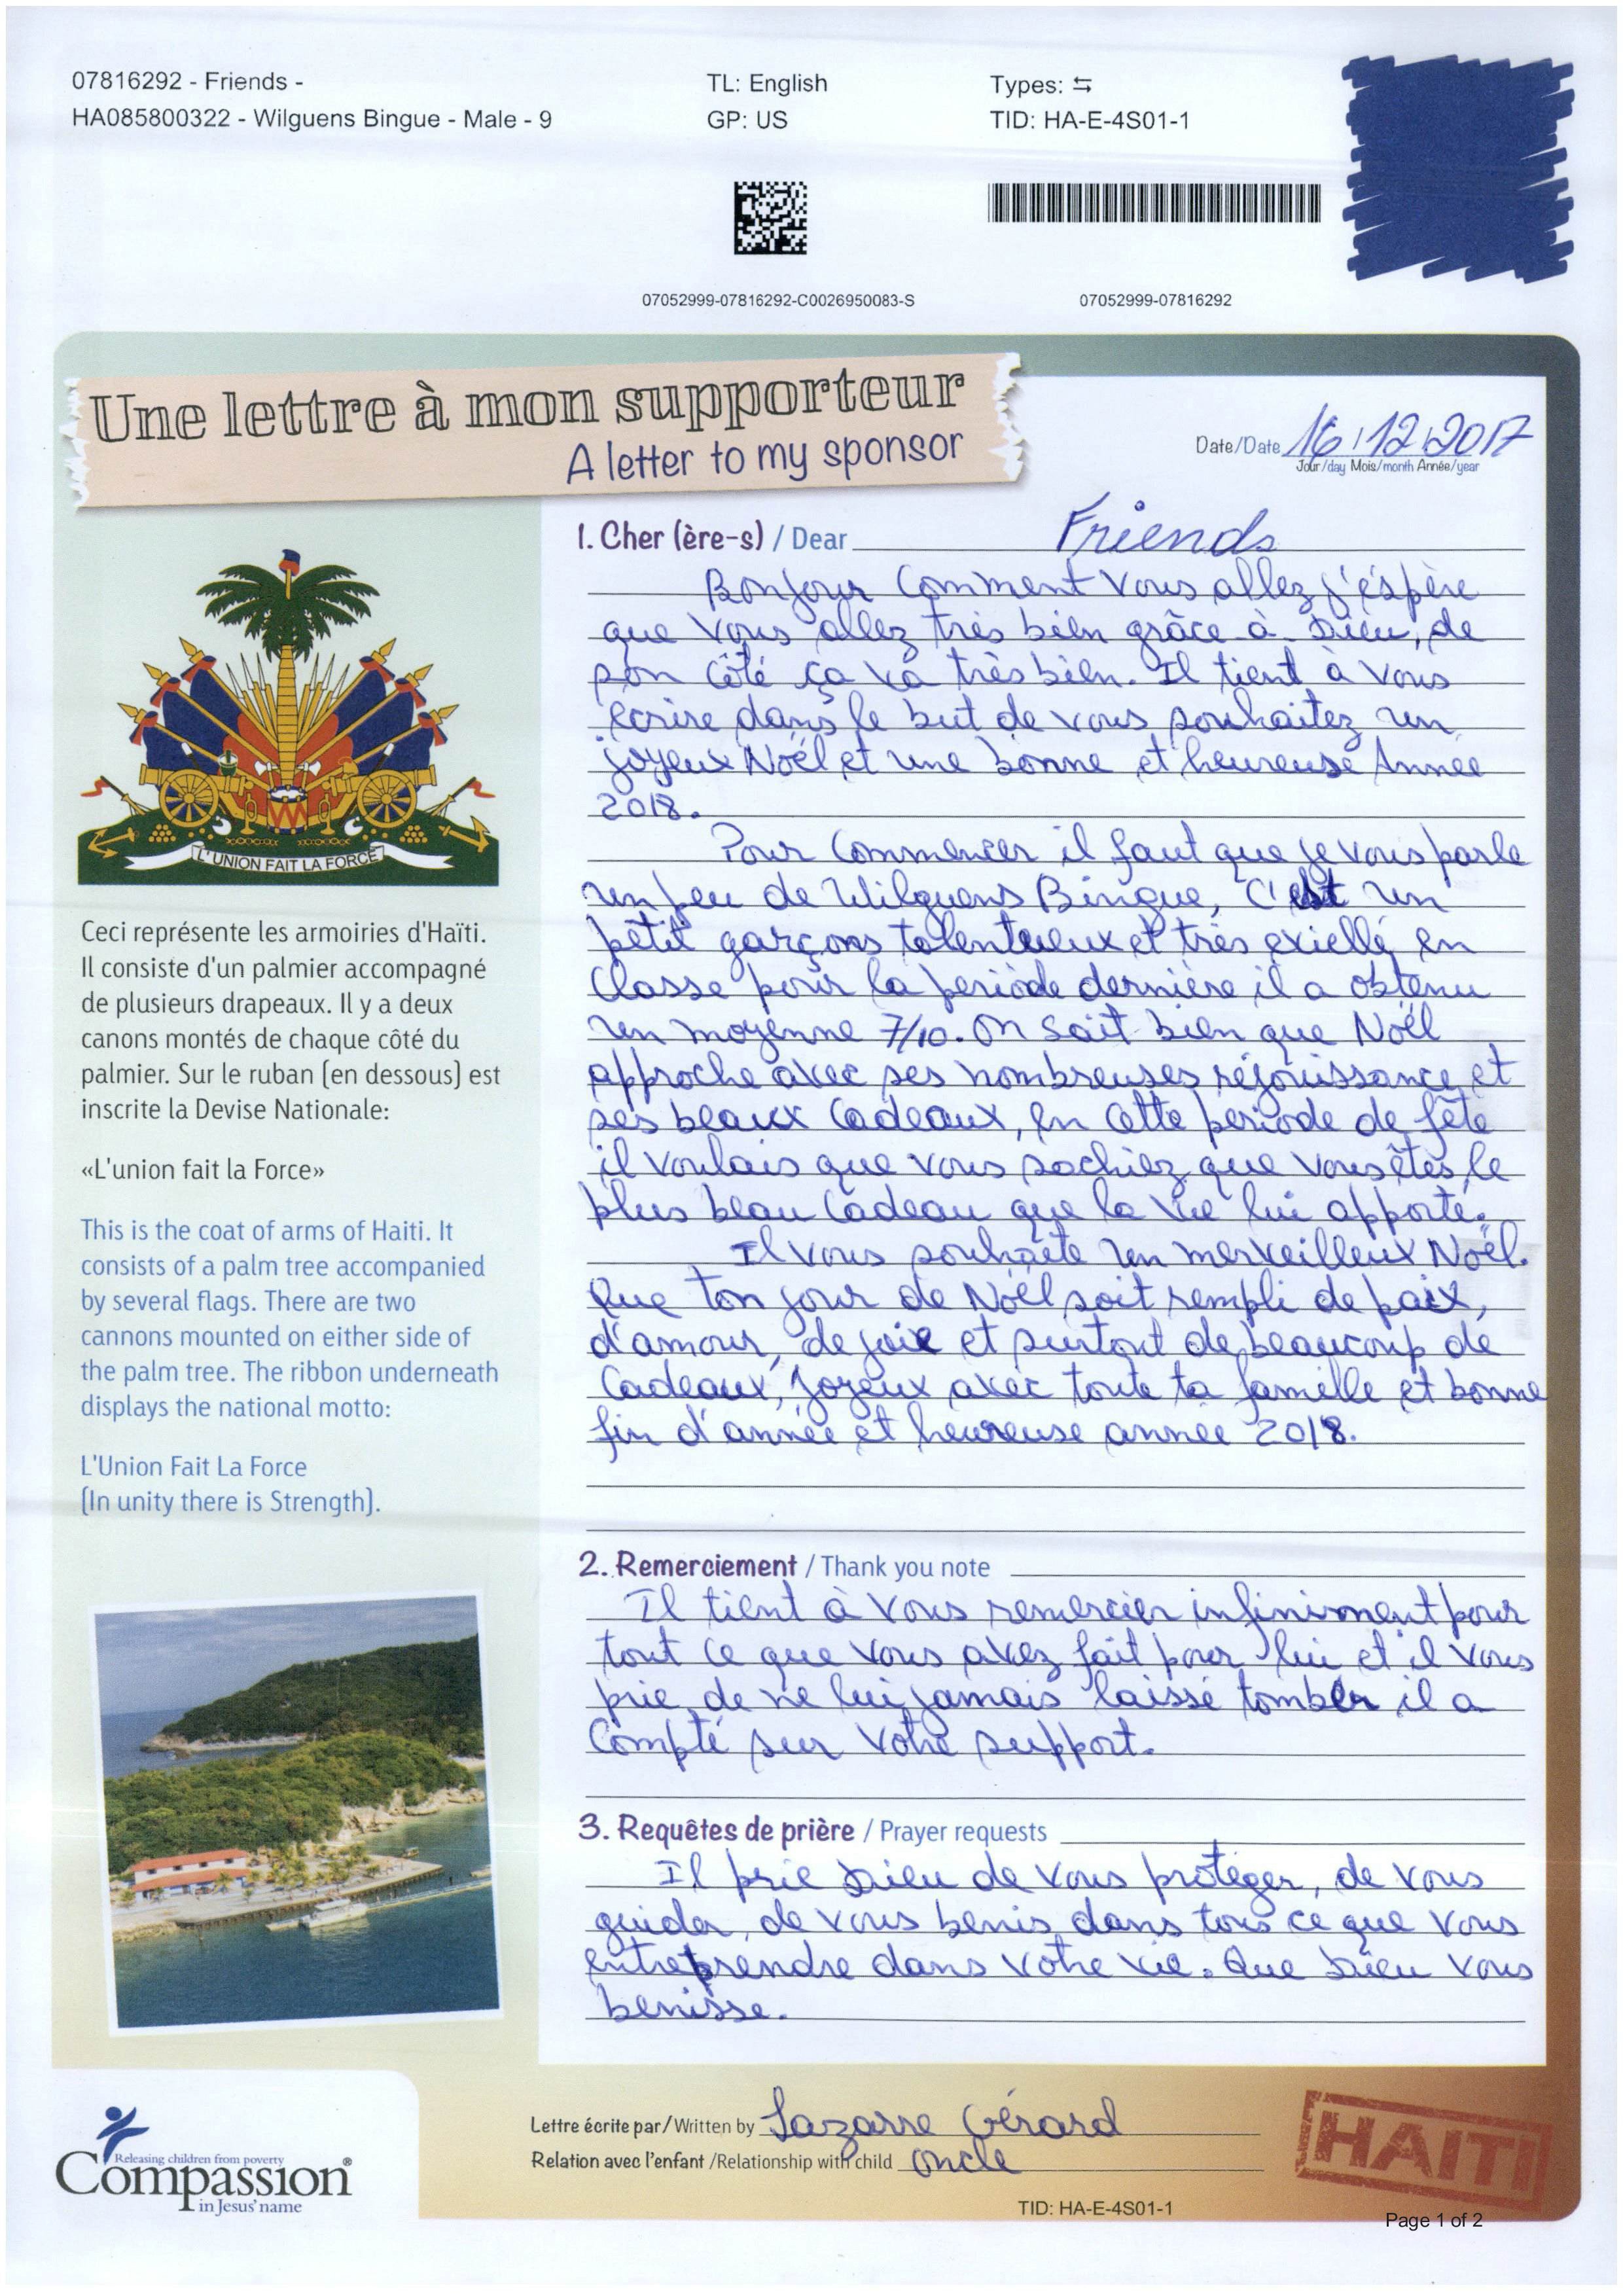 07816292 - Friends -
HA085800322 - Wilguens Bingue - Male - 9
TL: English
GP: US
Types: ⇆
TID: HA-E-4S01-1
07052999-07816292-C0026950083-S
07052999-07816292
Une lettre à mon supporteur
A letter to my sponsor
Date/Date 16/12/2017
Jour/day Mois/month Année/year
1. Cher (ère-s) / Dear Friends
Bonjour Comment vous allez j'éspère
que vous allez très bien grâce à Dieu, de
son côté ça va très bien. Il tient à vous
écrire dans le but de vous souhaitez un
joyeux Noël et une bonne et heureuse Année
2018.
Pour commencer il faut que je vous parle
un peu de Wilguens Bingue, C'est un
petit garçons talentueux et très exiellé en
classe pour la periode dernière il a obtenu
un moyenne 7/10. On sait bien que Noël
approche avec ses nombreuses réjouissance et
ses beaux cadeaux, en cette periode de fête
il voulais que vous sachiez que vous êtes le
plus beau cadeau que la vie lui apporté.
Il vous souhaite un merveilleux Noël.
Que ton jour de Noël soit rempli de paix,
d'amour, de joie et surtout de beaucoup de
Cadeaux, Joyeux avec toute ta famille et bonne
fin d'année et heureuse année 2018.
2. Remerciement / Thank you note
Il tient à vous remercier infiniment pour
tout ce que vous avez fait pour lui et il vous
prie de ne lui jamais laissé tomber il a
Compté sur votre support.
3. Requêtes de prière / Prayer requests
Il prie Dieu de vous protéger, de vous
guider, de vous benis dans tous ce que vous
entreprendre dans votre vie. Que Dieu vous
benisse.
L'UNION FAIT LA FORCE
Ceci représente les armoiries d'Haïti.
Il consiste d'un palmier accompagné
de plusieurs drapeaux. Il y a deux
canons montés de chaque côté du
palmier. Sur le ruban (en dessous) est
inscrite la Devise Nationale:
«L'union fait la Force»
This is the coat of arms of Haiti. It
consists of a palm tree accompanied
by several flags. There are two
cannons mounted on either side of
the palm tree. The ribbon underneath
displays the national motto:
L'Union Fait La Force
(In unity there is Strength).
Releasing children from poverty
Compassion®
in Jesus' name
Lettre écrite par/Written by Lazarre Gérard
Relation avec l'enfant /Relationship with child oncle
HAITI
TID: HA-E-4S01-1
Page 1 of 2